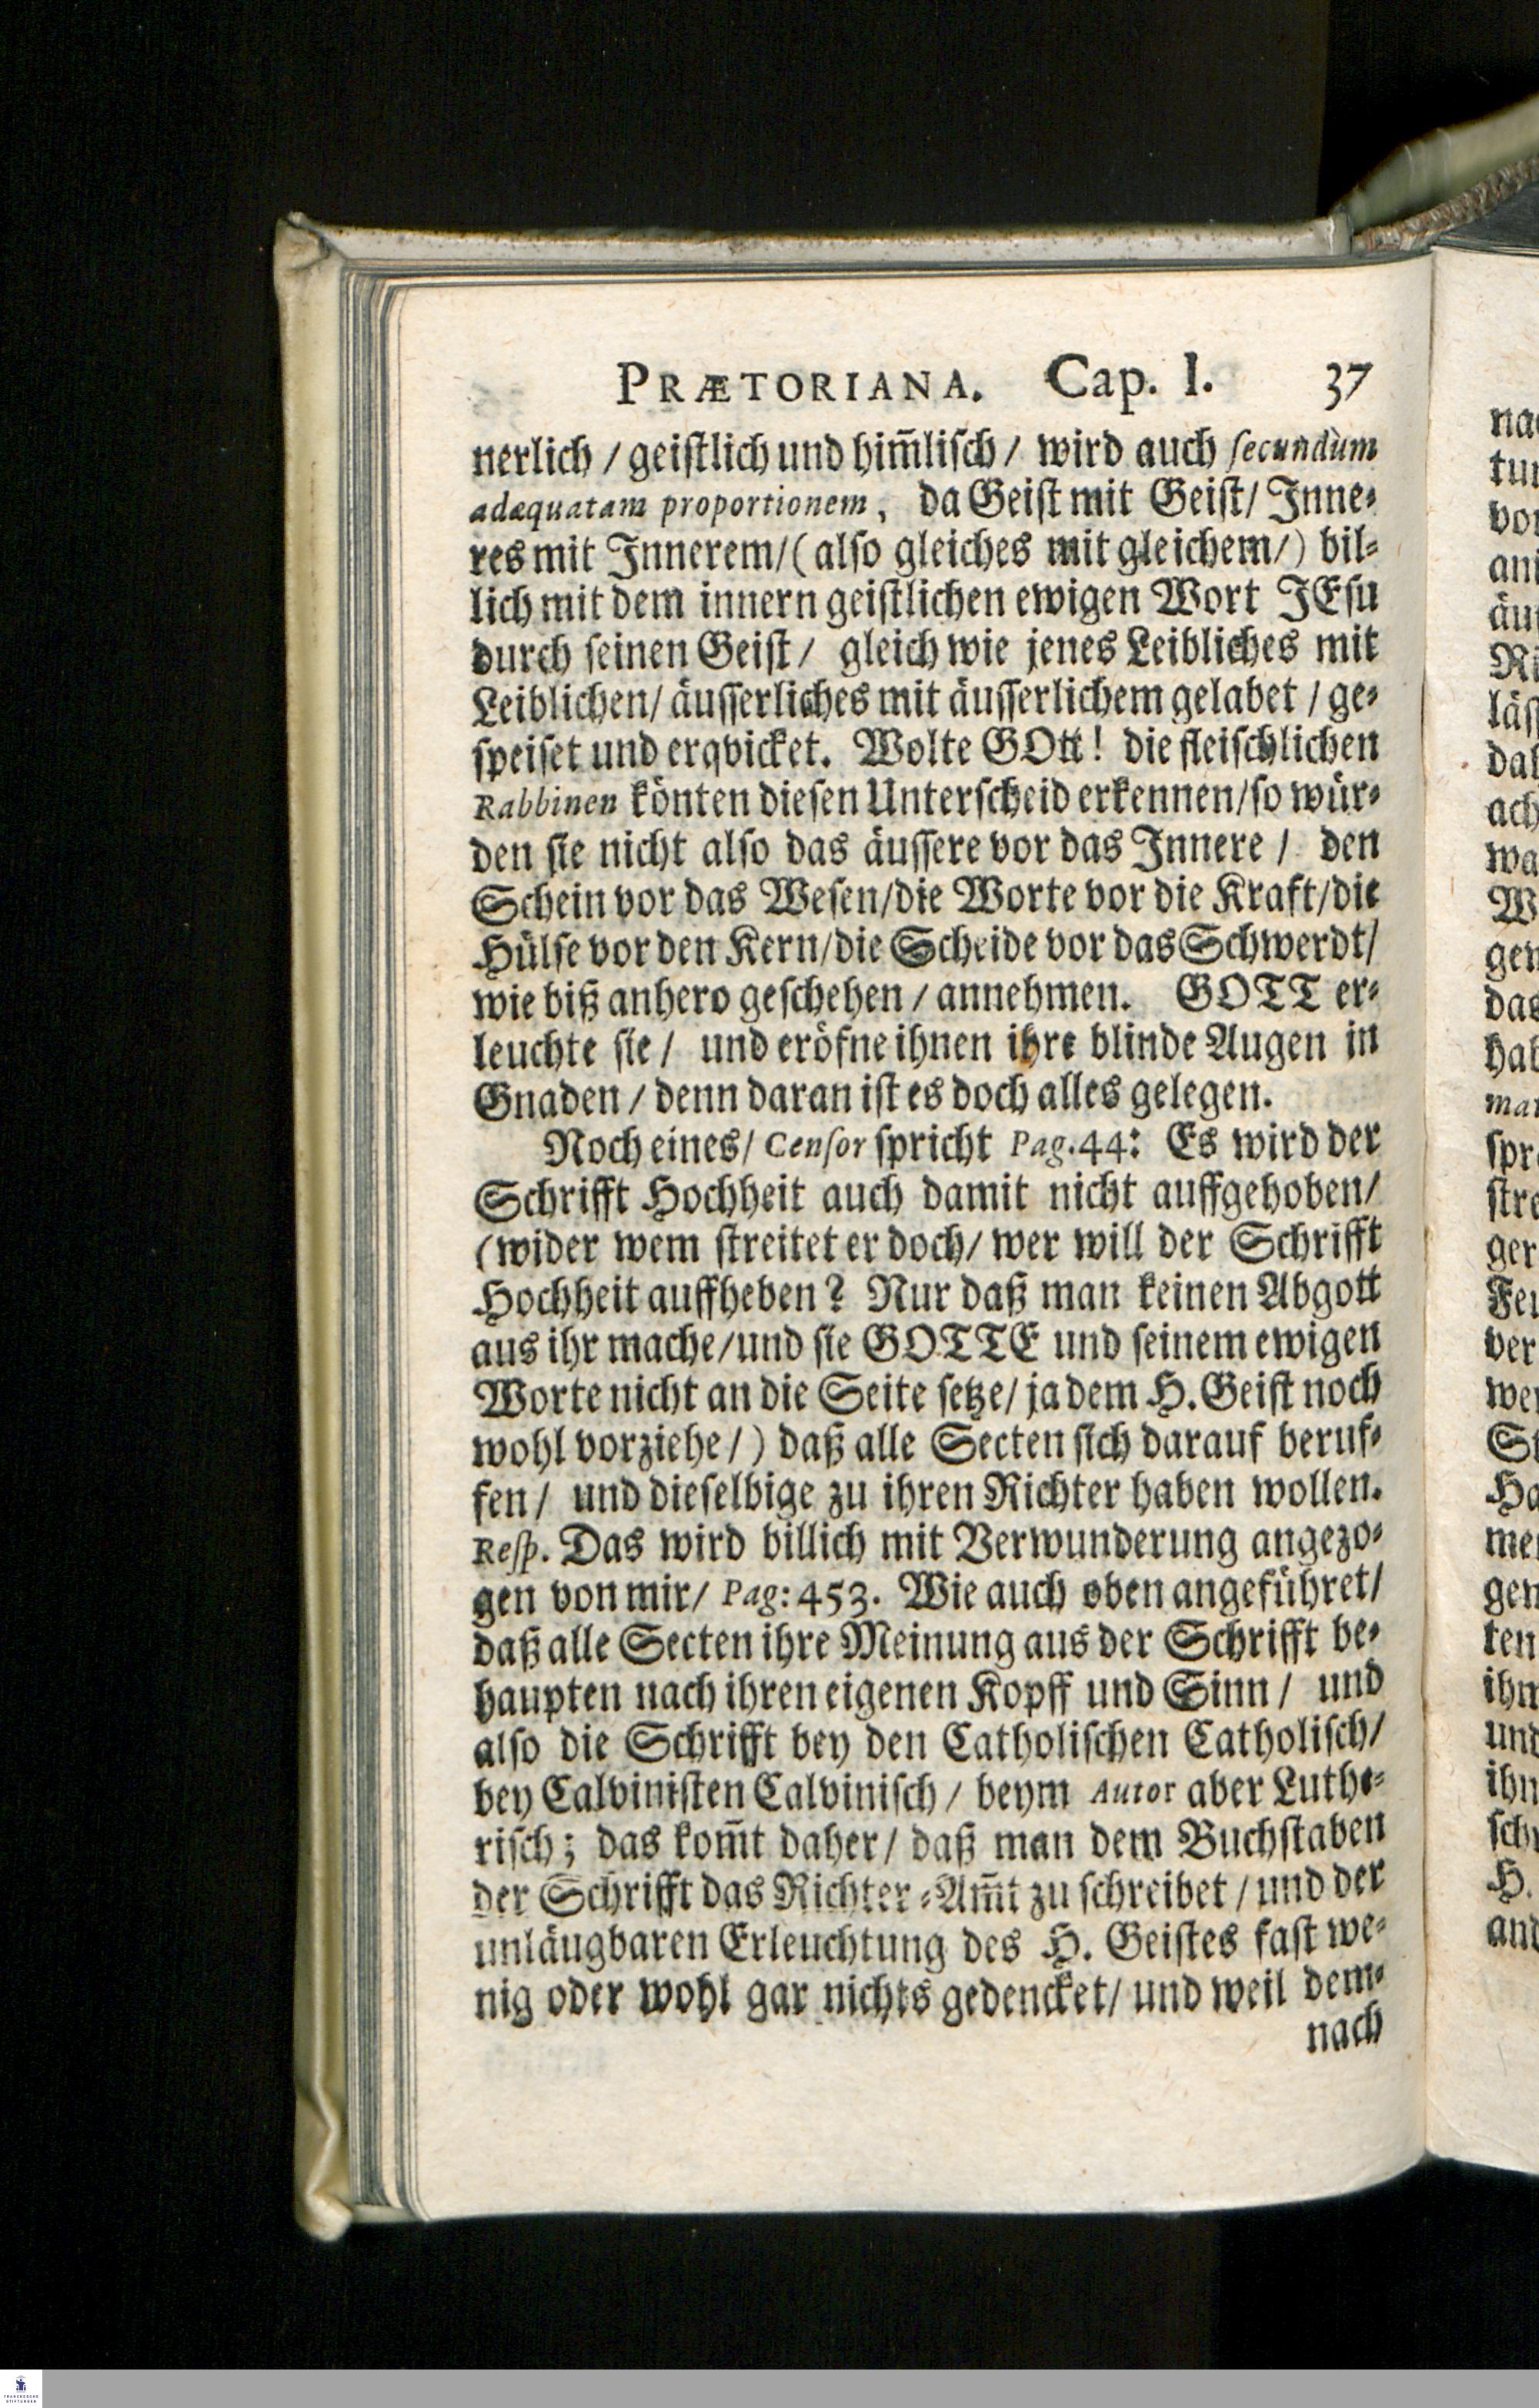 PRÆTORIANA. Cap. I. 37
nerlich / geistlich und him̃lisch / wird auch secundùm
adæquatam proportionem, da Geist mit Geist / Inne⸗
res mit Innerem / (also gleiches mit gleichem /) bil⸗
lich mit dem innern geistlichen ewigen Wort JEsu
durch seinen Geist / gleich wie jenes Leibliches mit
Leiblichen / äusserliches mit äusserlichem gelabet / ge⸗
speiset und erqvicket. Wolte GOtt! die fleischlichen
Rabbinen könten diesen Unterscheid erkennen / so wür⸗
den sie nicht also das äussere vor das Innere / den
Schein vor das Wesen / die Worte vor die Kraft / die
Hülse vor den Kern / die Scheide vor das Schwerdt /
wie biß anhero geschehen / annehmen. GOTT er⸗
leuchte sie / und eröfne ihnen ihre blinde Augen in
Gnaden / denn daran ist es doch alles gelegen.
Noch eines / Censor spricht Pag. 44: Es wird der
Schrifft Hochheit auch damit nicht auffgehoben /
(wider wem streitet er doch / wer will der Schrifft
Hochheit auffheben? Nur daß man keinen Abgott
aus ihr mache / und sie GOTTE und seinem ewigen
Worte nicht an die Seite setze / ja dem H. Geist noch
wohl vorziehe /) daß alle Secten sich darauf beruf⸗
fen / und dieselbige zu ihren Richter haben wollen.
Resp. Das wird billich mit Verwunderung angezo⸗
gen von mir / Pag: 453. Wie auch oben angeführet /
daß alle Secten ihre Meinung aus der Schrifft be⸗
haupten nach ihren eigenen Kopff und Sinn / und
also die Schrifft bey den Catholischen Catholisch /
bey Calvinisten Calvinisch / beym Autor aber Luthe⸗
risch; das kom̃t daher / daß man dem Buchstaben
der Schrifft das Richter⸗Am̃t zu schreibet / und der
unläugbaren Erleuchtung des H. Geistes fast we⸗
nig oder wohl gar nichts gedencket / und weil dem⸗
nach